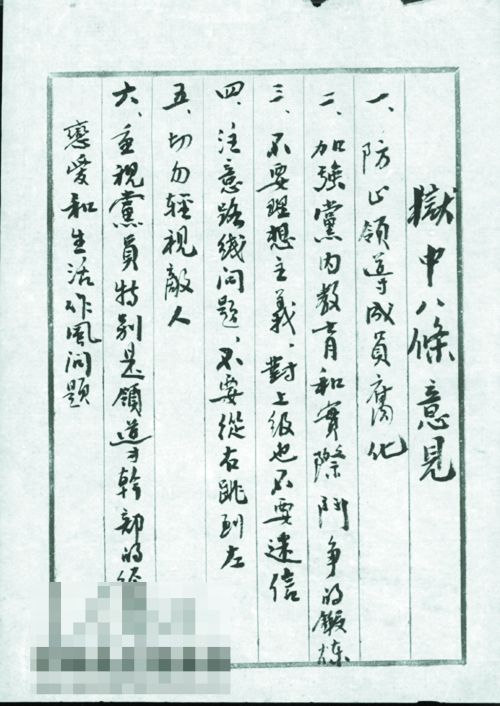 獄中八條意見
一、防止領導成員腐化
二、加強黨內教育和實際鬥争的鍛煉
三、不要理想主義，對上級也不要迷信
四、注意路线问題，不要從右跳到左
五、切勿輕視敵人
六、重視黨員特别是領導幹部的經
戀愛和生活作風问題